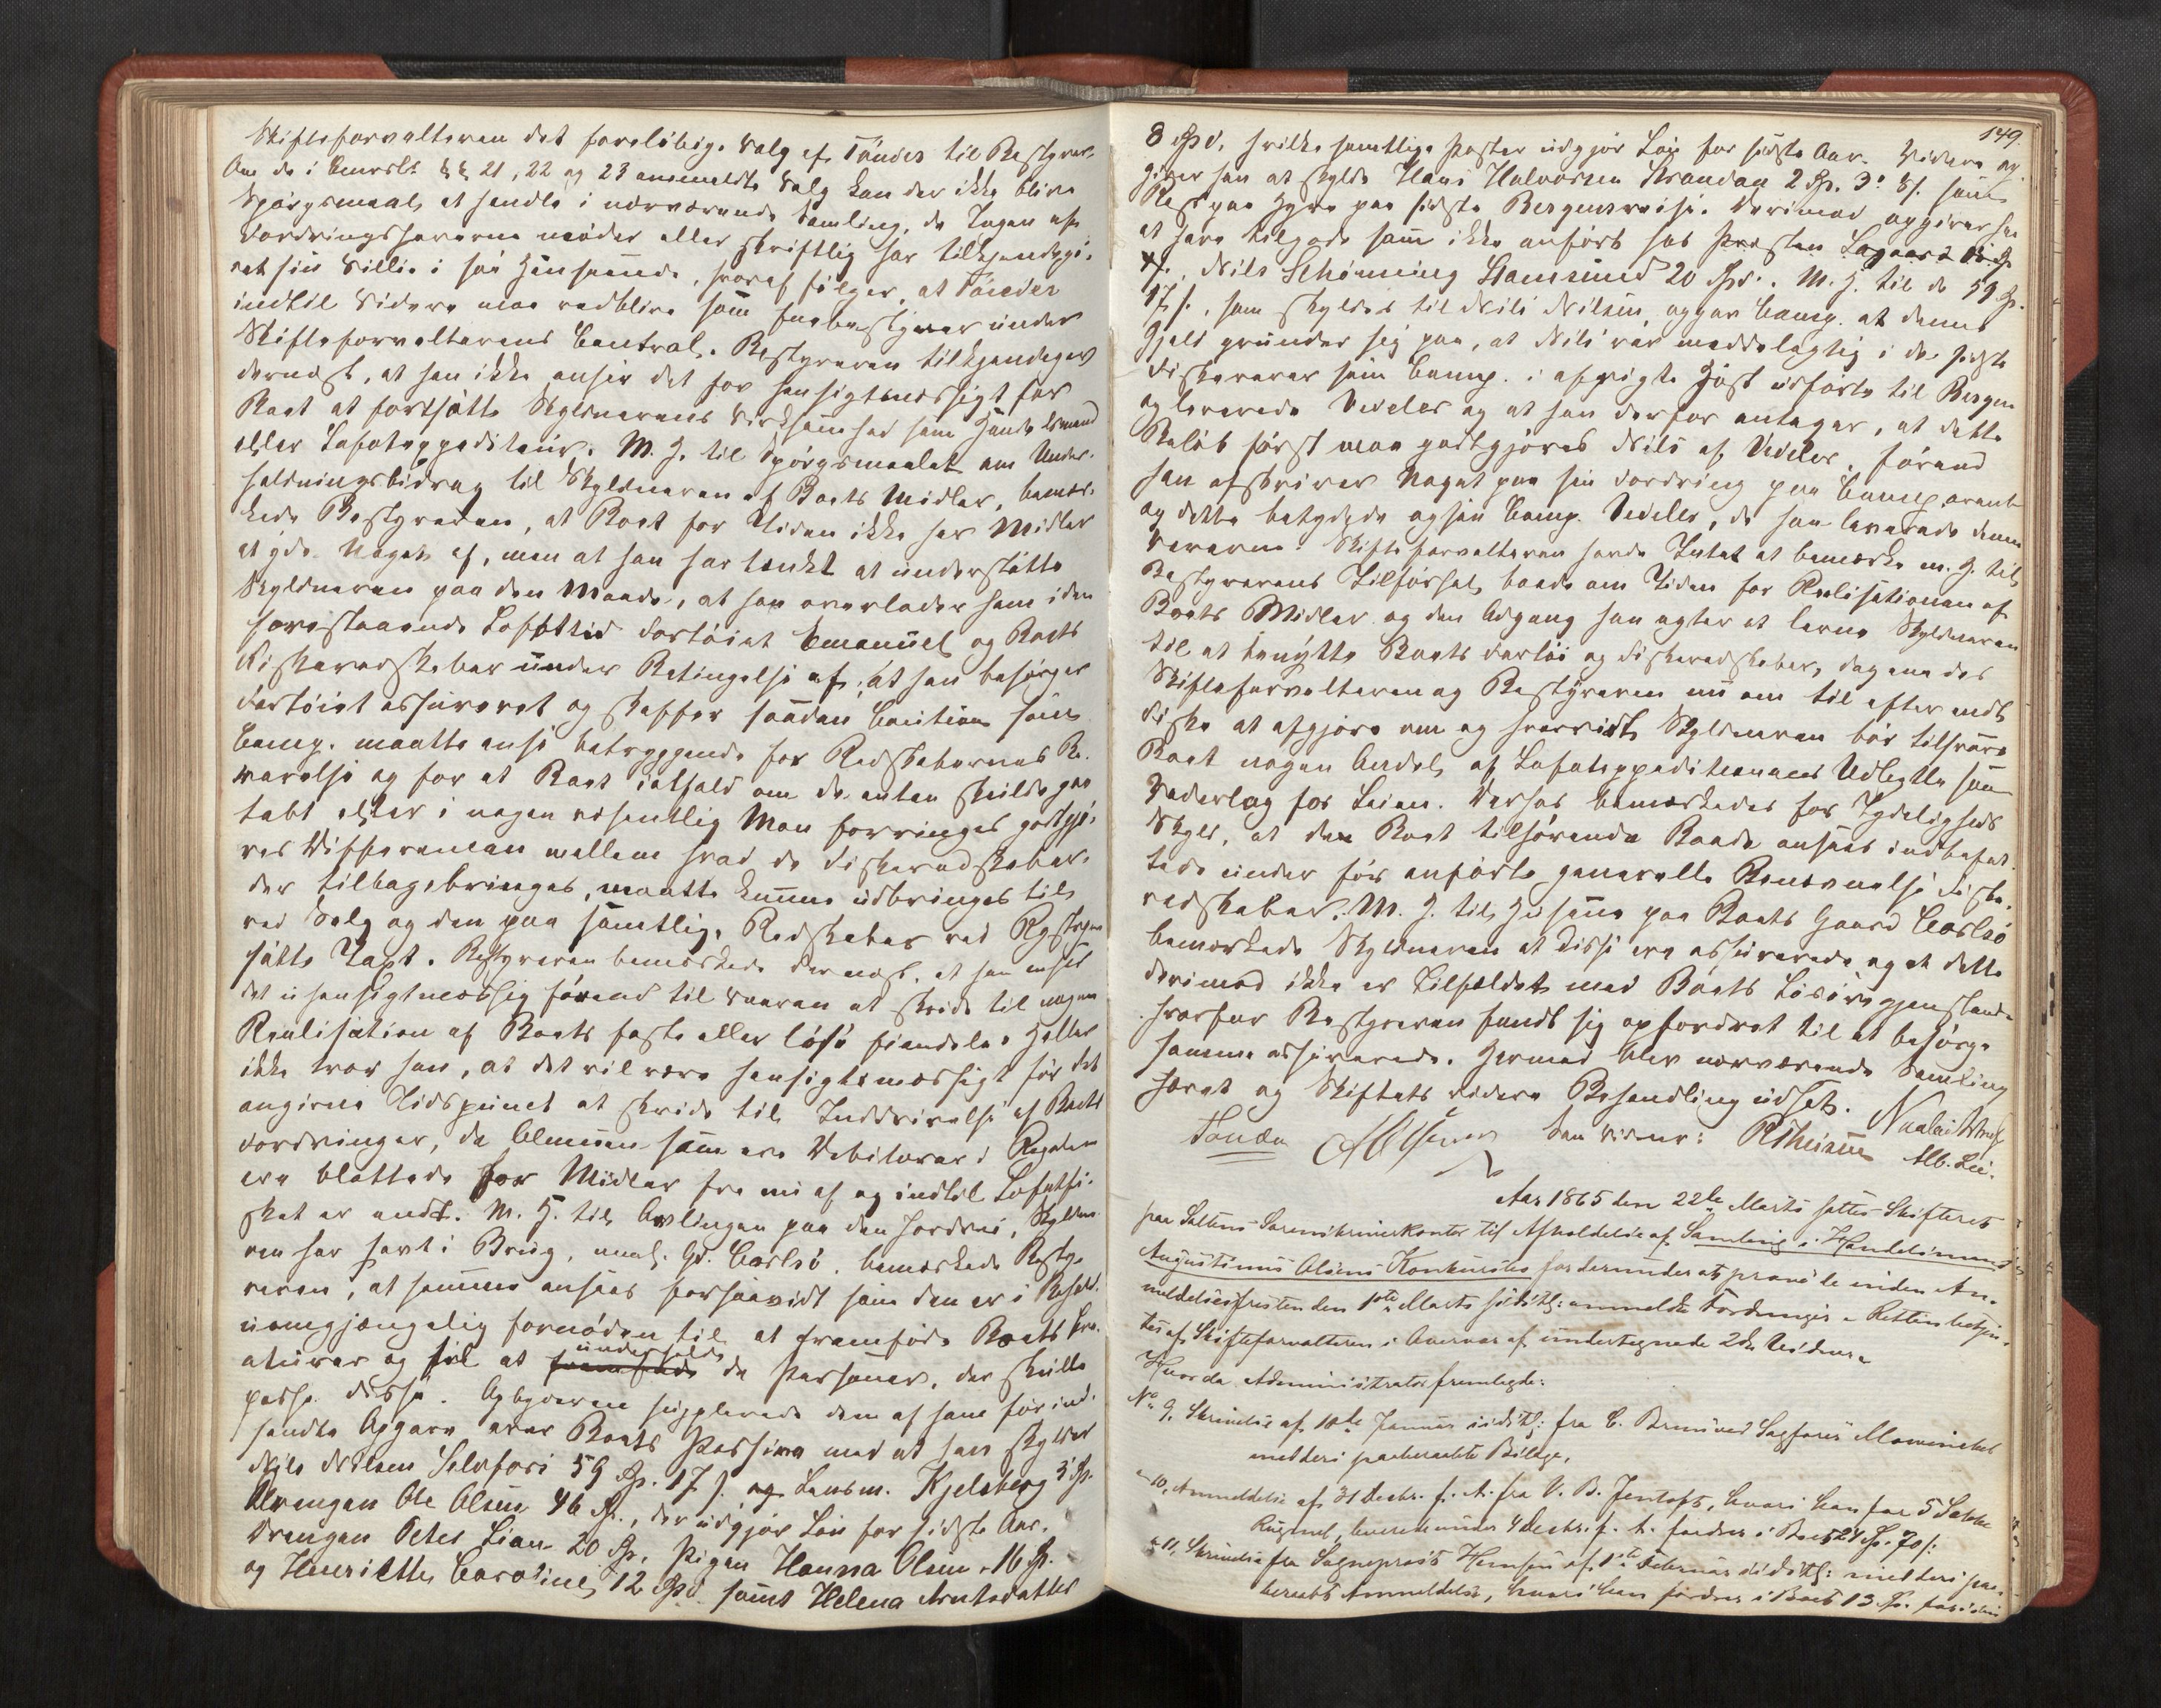 Skifteforvalteren det foreløbige Valg af Tönder til Bestyrer.
Om de i Concursl. §§ 21, 22 og 23 ommeldte Valg kan der ikke blive
Spørgsmaal at handle i nærværende Samling, da Ingen af
Fordringshaverne møder eller skriftlig har tilkjendegi-
vet sin Villie i saa Henseende, hvoraf følger, at Tönder
indtil Videre maa vedblive som Enebestyrer under
Skifteforvalterens Control. Bestyreren tilkjendegav
dernæst, at han ikke anseer det for hensigtsmæssigt for
Boet at fortsætte Skyldnerens Virksomhed som Handelsmand
eller Lofotexpediteur. M. H. til Spørgsmaalet om Under-
holdningsbidrag til Skyldneren af Boets Midler, bemær-
kede Bestyreren, at Boet for Tiden ikke har Midler
at yde Noget af, men at han har tænkt at understøtte
Skyldneren paa den Maade, at han overlader ham i den
forestaaende Lofottid Fartøiet Emanuel og Boets
Fiskeredskaber under Betingelse af, at han besørger
Fartøiet assureret og skaffer saadan Caution som
Comp. maatte anse betryggende for Redskabernes Be-
varelse og for at Boet ialfald om de enten skulde gaa
tabt eller i nogen væsentlig Mon forringes godtgjø-
res Differencen mellem hvad de Fiskeredskaber,
der tilbagebringes, maatte kunne udbringes til
ved Salg og den paa samtlige Redskaber ved Registr.
satte Taxt. Bestyreren bemærkede dernæst, at han anseer
det uhensigtmæssig førend til Vaaren at skride til nogen
Realisation af Boets faste eller løse Eiendele. Heller
ikke tror han, at det vil være hensigtsmæssigt før det
angivne Tidspunct at skride til Inddrivelse af Boets
Fordringer, da Almuen som ere Debitorer i Regelen
ere blottede for Midler fra nu af og indtil Lofotfi-
sket er endt. M. H. til Avlingen paa den Jordvei, Skyldne-
ren har havt i Brug, nemlig Gd. Carlsø, bemærkede Besty-
reren, at samme ansees forsaavidt som den er i Behold,
uomgjængelig fornøden til at fremføde Boets Krea-
underholde
turer og til at fremføde de Personer, der skulle
passe disse. Opbyderen supplerede den af ham før ind-
sendte Opgave over Boets Passiva med at han skylder
Nils Nilsen Selvfors 59 Sp. 17 s. og Lensm. Kjelsberg 3 Sp.
Drengen Ole Olsen 46 Sp., der udgjør Løn for sidste Aar.
Drengen Peter Lian 20 Sp, Pigen Hanna Olsen 16 Sp.
og Henriette Caroline 12 Spd. samt Helena Arntsdatter
149.
8 Spd, hvilke samtlige Poster udgjør Løn for sidste Aar. Videre op-
giver han at skylde Hans Halvorsen Strandan 2 Sp. 3 . 8 s. som
Rest paa Hyre paa sidste Bergensreise. Derimod opgiver han
at have tilgode som ikke anført hos Presten
Nils Schönning Stamsund 20 Spd. M. H. til de 59 Sp.
17 s., som skyldes til Nils Nilsen, opgav Comp. at denne
Gjeld grunder sig paa, at Nils var meddelagtig i de sidste
Fiskevarer som Comp. i afvigte Høst udførte til Bergen
og leverede Vedeler og at han derfor antager, at dette
Beløb først maa godtgjøres Nils af Vedeler, førend
han afskriver Noget paa sin Fordring paa Comparent
og dette betydede ogsaa Comp. Vedeler, da han leverede denne
Varerne. Skifteforvalteren havde Intet at bemærke m. H. til
Bestyrerens Tilførsel, baade om Tiden for Realisationen af
Boets Midler og den Adgang han agter at levne Skyldneren
til at benytte Boets Fartøi og Fiskeredskaber, dog enedes
Skifteforvalteren og Bestyreren nu om til efter endt
Fiske at afgjøre om og hvorvidt Skyldneren bør tilsvare
Boet nogen Andel af Lofotexpeditionens Udbytte som
Vederlag for Leien. Derhos bemærkedes for Tydeligheds
Skyld, at de Boet tilhørende Baade ansees indbefat-
tede under før anførte generelle Benævnelse Fiske-
redskaber. M. H. til Husene paa Boets Gaard Carlsø
bemærkede Skyldneren at disse ere assurerede og at dette
derimod ikke er Tilfældet med Boets Løsøregjenstande
hvorfor Bestyreren fandt sig opfordret til at besørge
samme assurerede. Hermed blev nærværende Samling
hævet og Skiftets videre Behandling udsat.
Tönder Som Vidner:
Alb. Lie.
Aar 1865 den 22de Marts sattes Skifteret
paa Saltens Sorenskriverkontor til Afholdelse af Samling i Handelsmand
Augustinus Olsens Konkursbo for derunder at prøve de inden An-
meldelsesfristen den 1ste Marts sidstl: anmeldte Fordringer. Retten betjen-
tes af Skifteforvalteren i Overvær af undertegnede 2de Vidner.
Hvorda Administrator fremlagde:
No 9, Skrivelse af 10de Januar sidstl: fra C. Brun ved Sagfører Mowinckel
med deri paaberaabte Bilage,
" 10, Anmeldelse af 31 Decbr. f. A. fra V. B. Jentoft, hvori han for 5 Sække
Rugmel, leverede under 4 Decbr. f. A. fordrer i Boet 21 Sp. 70 s:
" 11, Skrivelse fra Sogneprest af 1ste Februar sidstl: med deri paa-
beraabt Anmeldelse, hvori han fordrer i Boet 13 Sp.